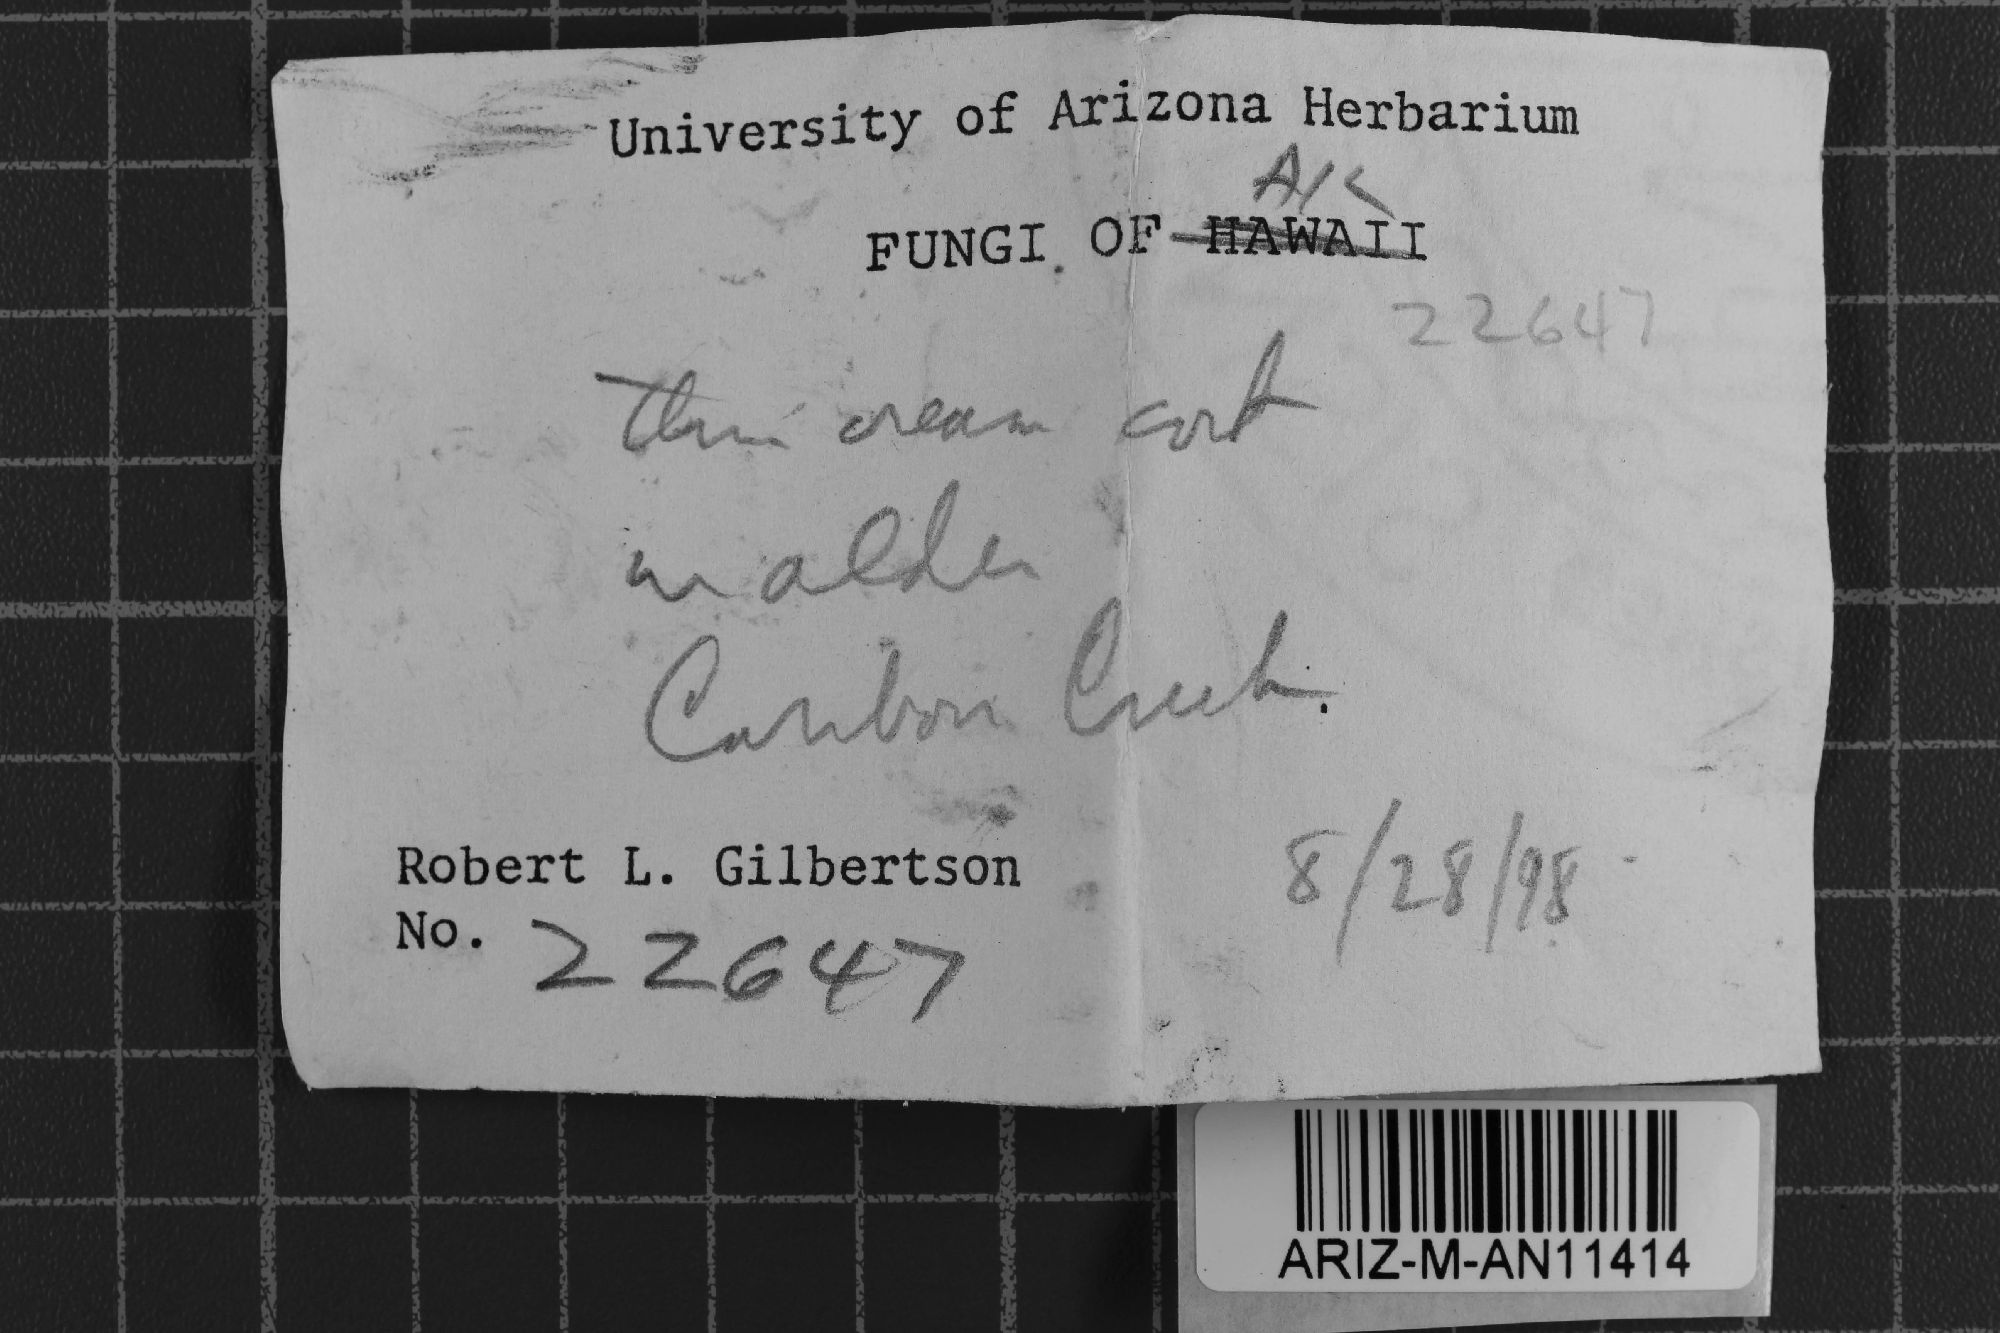 University of Arizona Herbarium
AK
FUNGI OF HAWAII
22647
Thin cream cort
on alder
Caribou Creek.
Robert L. Gilbertson
8/28/98
No. 22647
ARIZ-M-AN11414